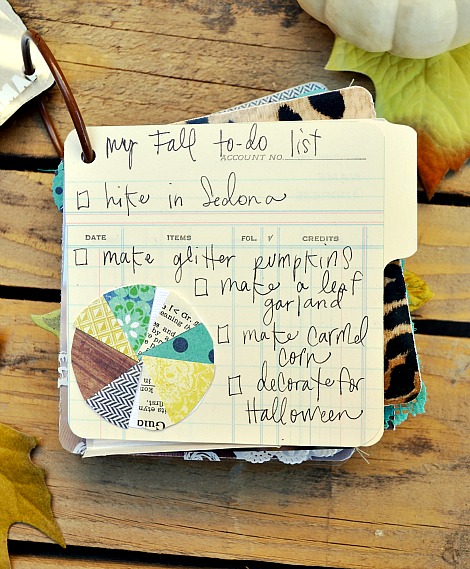 my Fall to-do list
ACCOUNT NO.
hike in Sedona
DATE ITEMS FOL. CREDITS
make glitter pumpkins
make a leaf
garland
make carmel
corn
decorate for
Halloween